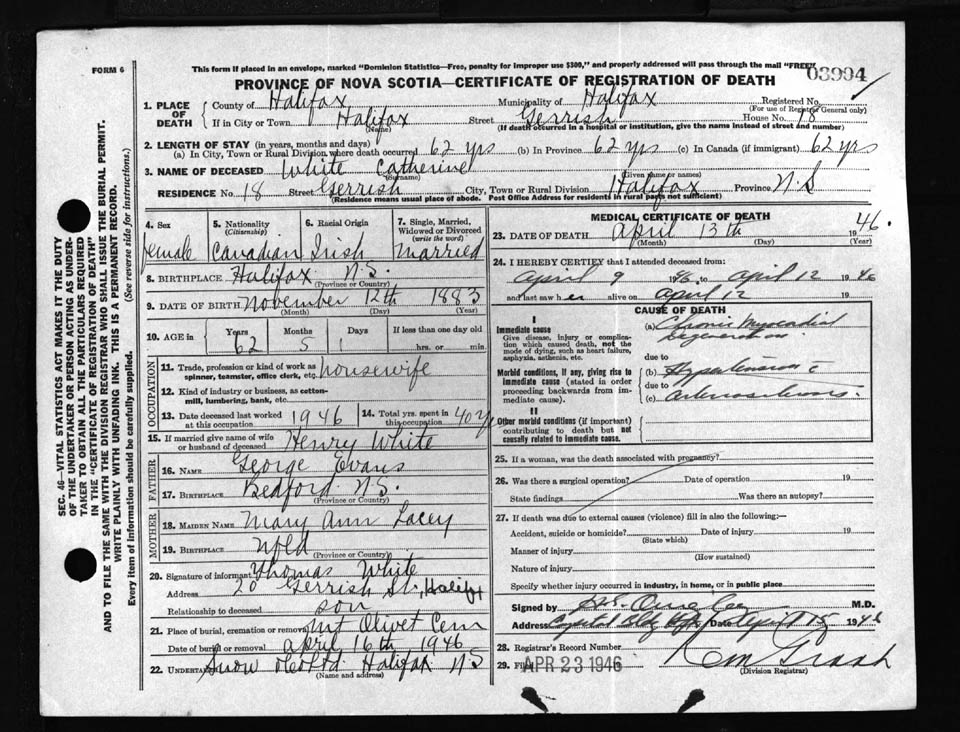 FORM 6
This form if placed in an envelope, marked "Dominion Statistics—Free, penalty for improper use $300," and properly addressed will pass through the mail "FREE"
03994
PROVINCE OF NOVA SCOTIA—CERTIFICATE OF REGISTRATION OF DEATH
1. PLACE OF DEATH
County of Halifax Municipality of Halifax Registered No.
(For use of Registrar General only)
If in City or Town Halifax Street Gerrish House No. 18
(Name) (If death occurred in a hospital or institution, give the name instead of street and number)
2. LENGTH OF STAY (in years, months and days)
(a) In City, Town or Rural Division where death occurred 62 yrs (b) In Province 62 yrs (c) In Canada (if immigrant) 62 yrs
3. NAME OF DECEASED White Catherine
(Surname) (Given or names)
RESIDENCE No. 18 Street Gerrish City, Town or Rural Division Halifax Province N.S
(Residence means usual place of abode. Post Office Address for residents in rural parts not sufficient)
4. Sex female
5. Nationality (Citizenship) Canadian
6. Racial Origin Irish
7. Single, Married, Widowed or Divorced (write the word) Married
8. BIRTHPLACE Halifax N.S.
(Province or Country)
9. DATE OF BIRTH November 12th 1883
(Month) (Day) (Year)
10. AGE in Years Months Days If less than one day
62 5 1 hrs. or min.
OCCUPATION
11. Trade, profession or kind of work as spinner, teamster, office clerk, etc. housewife
12. Kind of industry or business, as cotton-mill, lumbering, bank, etc.
13. Date deceased last worked at this occupation 1946
14. Total yrs. spent in this occupation 40 yrs
15. If married give name of wife or husband of deceased Henry White
FATHER
16. NAME George Evans
17. BIRTHPLACE Bedford N.S.
(Province or Country)
MOTHER
18. MAIDEN NAME Mary Ann Lacey
19. BIRTHPLACE Nfld
(Province or Country)
20. Signature of informant Thomas White
Address 20 Gerrish St., Halifax
Relationship to deceased son
21. Place of burial, cremation or removal Mt Olivet Cem
Date of burial or removal April 16th 1946
22. UNDERTAKER Snow & Co Ltd Halifax N.S
(Name and address)
MEDICAL CERTIFICATE OF DEATH
23. DATE OF DEATH April 13th 1946.
(Month) (Day) (Year)
24. I HEREBY CERTIFY that I attended deceased from:
April 9 1946 to April 12 1946
and last saw her alive on April 12 19
CAUSE OF DEATH
I
Immediate cause
Give disease, injury or complication which caused death, not the mode of dying, such as heart failure, asphyxia, asthenia, etc.
(a) Chronic Myocardial Degeneration
due to
Morbid conditions, if any, giving rise to immediate cause (stated in order proceeding backwards from immediate cause).
(b) Hypertension c
due to
(c) arteriosclerosis.
II
Other morbid conditions (if important) contributing to death but not causally related to immediate cause.
25. If a woman, was the death associated with pregnancy?
26. Was there a surgical operation? Date of operation 19
State findings Was there an autopsy?
27. If death was due to external causes (violence) fill in also the following:—
Accident, suicide or homicide? Date of injury 19
(State which)
Manner of injury
(How sustained)
Nature of injury
Specify whether injury occurred in industry, in home, or in public place
Signed by M.D.
Address Date April 15 1946
28. Registrar's Record Number
29. Filed APR 23 1946
(Division Registrar)
SEC. 46—VITAL STATISTICS ACT MAKES IT THE DUTY OF THE UNDERTAKER OR PERSON ACTING AS UNDERTAKER TO OBTAIN ALL THE PARTICULARS REQUIRED IN THE "CERTIFICATE OF REGISTRATION OF DEATH" AND TO FILE THE SAME WITH THE DIVISION REGISTRAR WHO SHALL ISSUE THE BURIAL PERMIT.
WRITE PLAINLY WITH UNFADING INK. THIS IS A PERMANENT RECORD.
Every item of information should be carefully supplied. (See reverse side for instructions.)